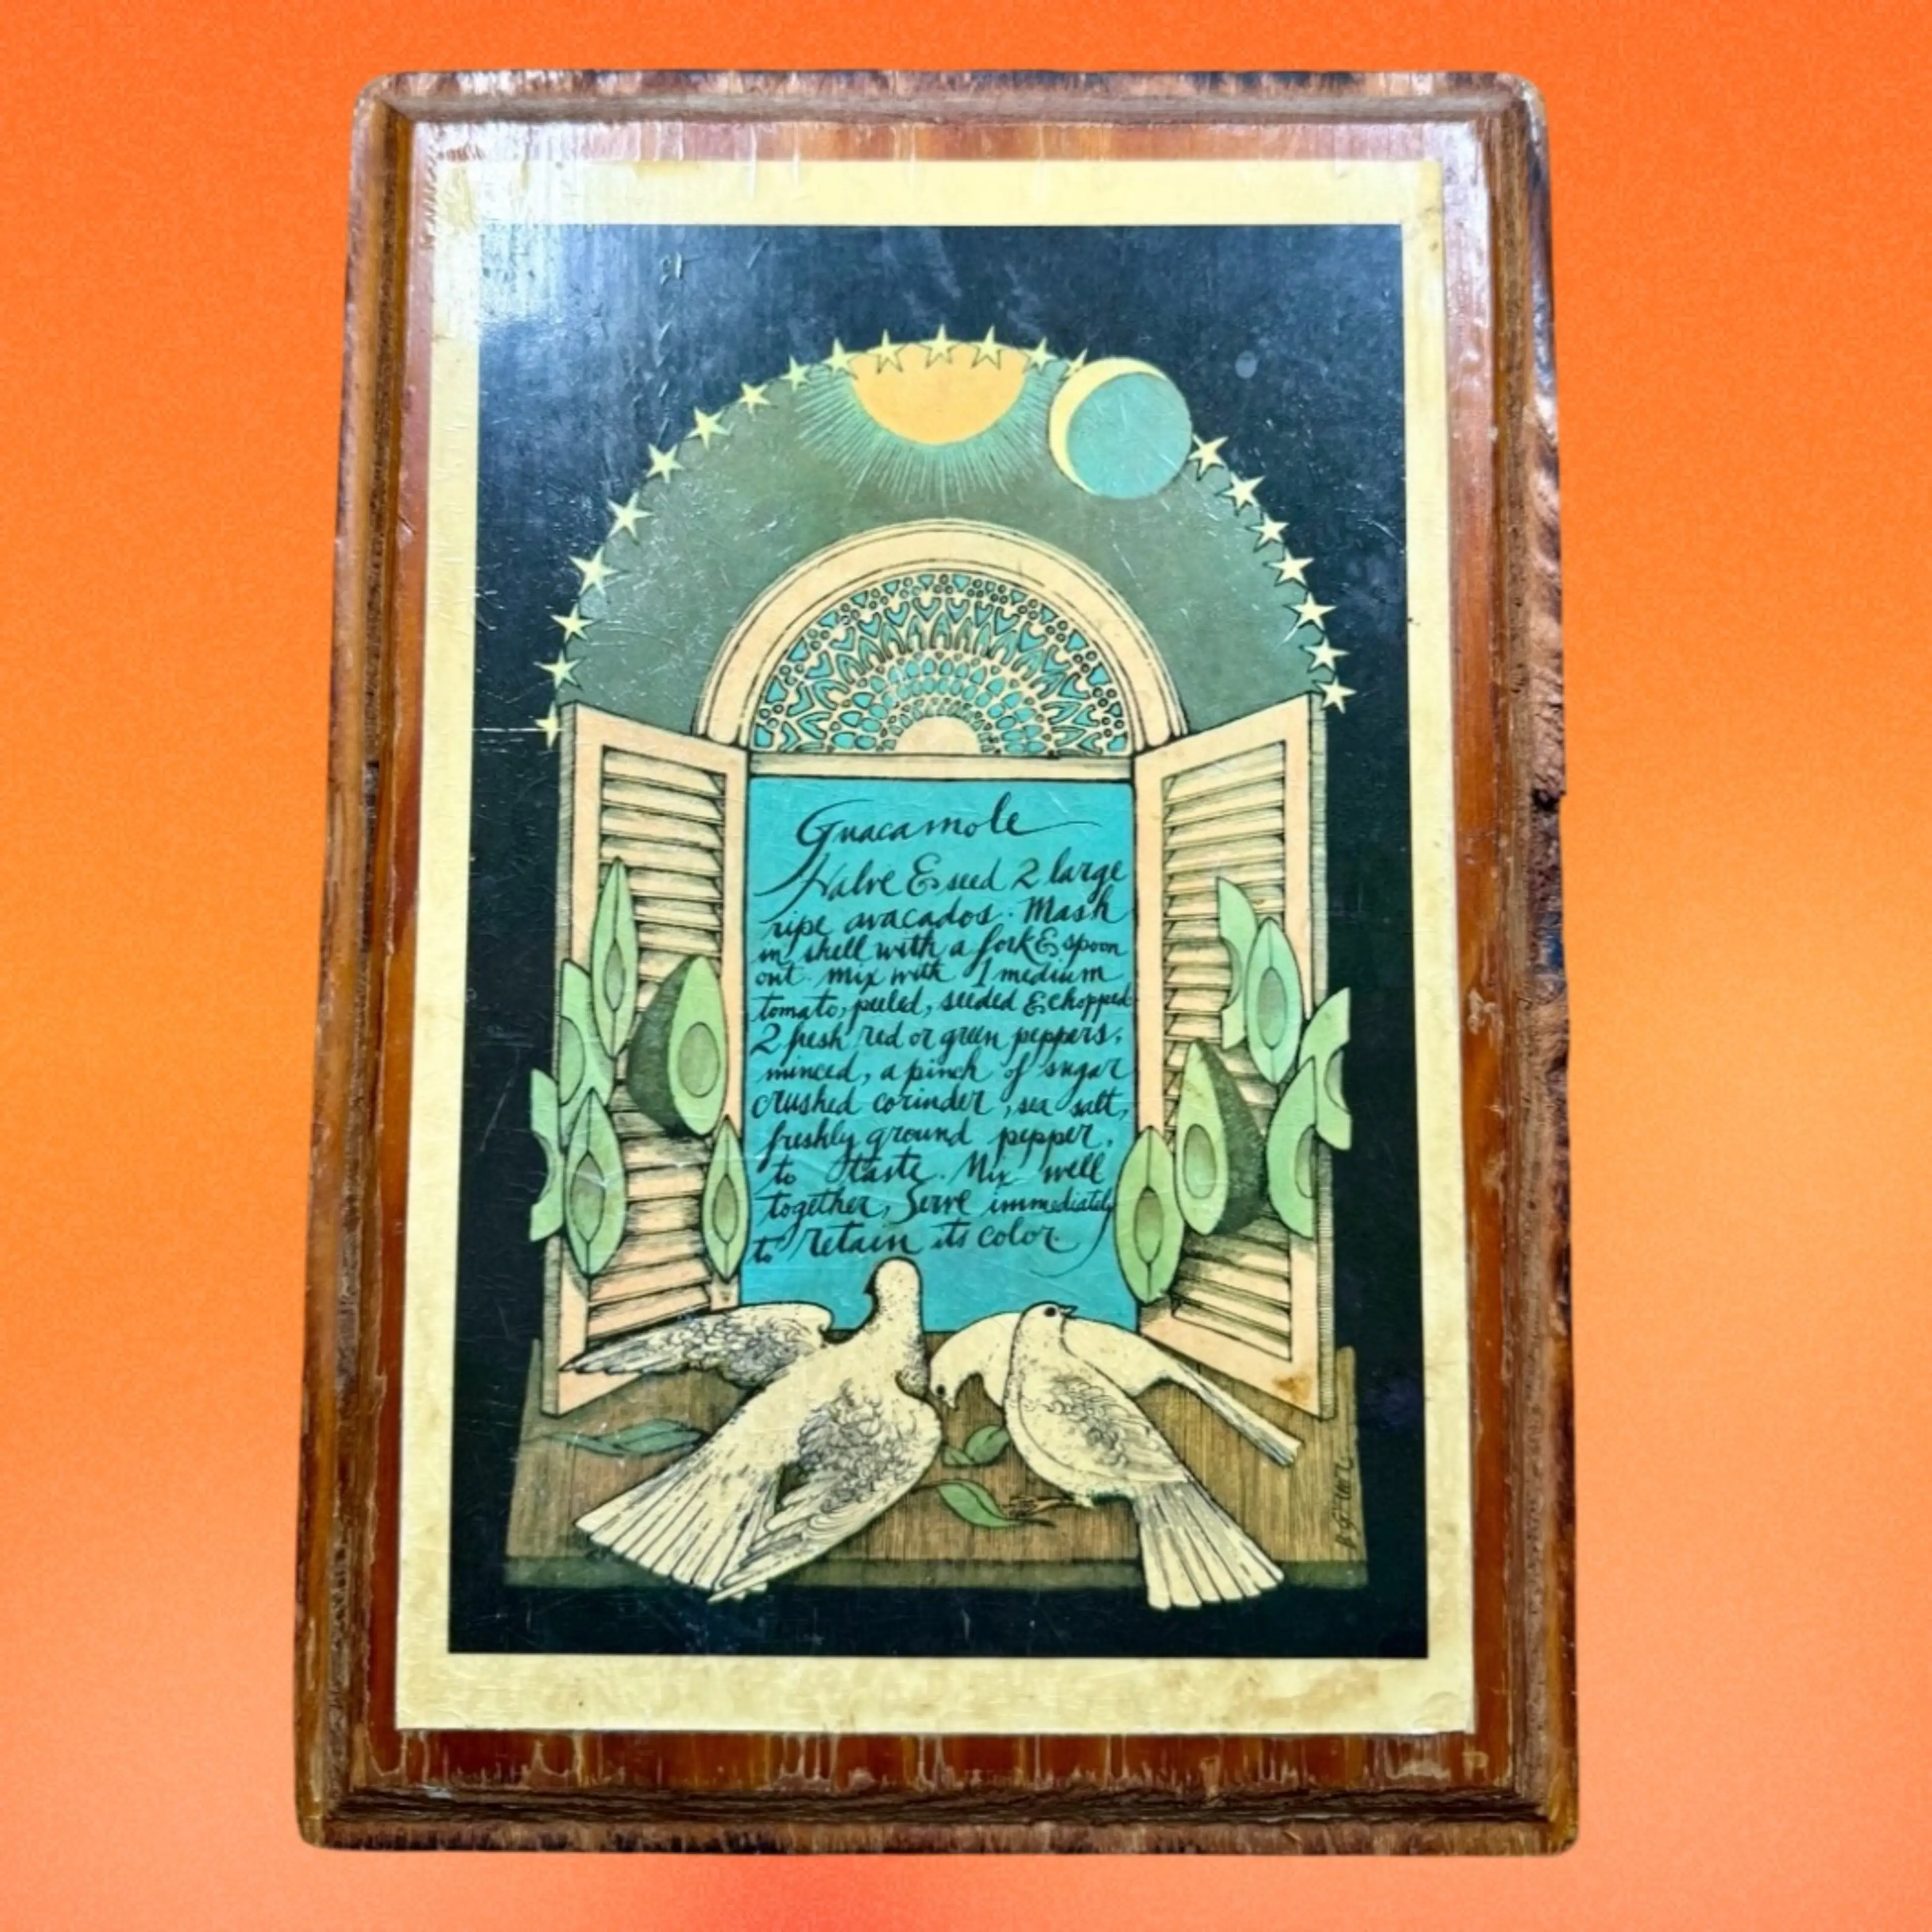 Guacamole
Halve & seed 2 large
ripe avacados. Mash
in shell with a fork & spoon
out. mix with 1 medium
tomato, peeled, seeded & chopped
2 fresh red or green peppers,
minced, a pinch of sugar
crushed corinder, sea salt,
freshly ground pepper,
to taste. Mix well
together, Serve immediately
to retain its color.